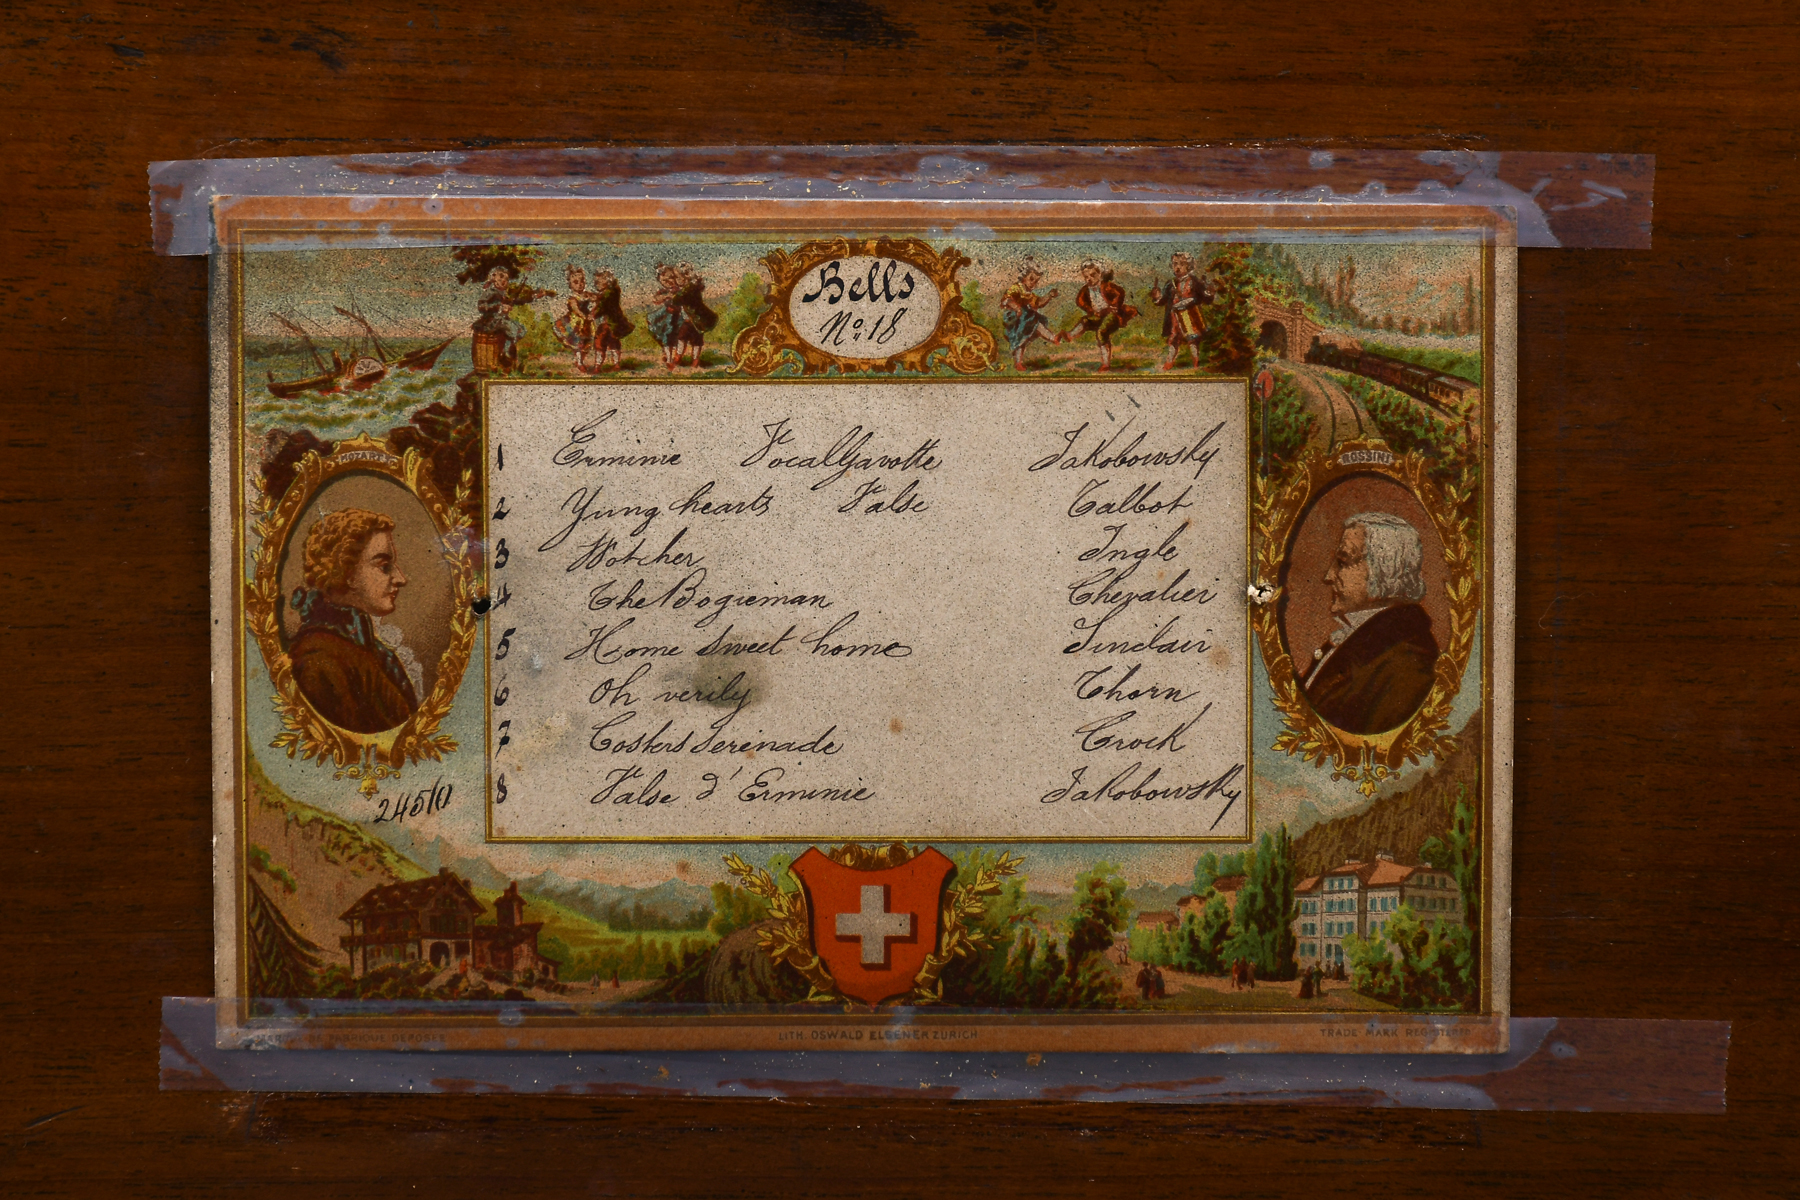 Bells
No. 18
MOZART
ROSSINI
1 Erminie Vocal Gavotte Jakobowsky
2 Yung hearts Valse Talbot
3 Wotcher Ingle
4 The Bogieman Chevalier
5 Home sweet home Sinclair
6 Oh verily Thorn
7 Costers Serenade Crock
8 Valse d'Erminie Jakobowsky
DE FABRIQUE DEPOSEE
LITH. OSWALD ELSENER ZURICH
TRADE MARK REGISTERED